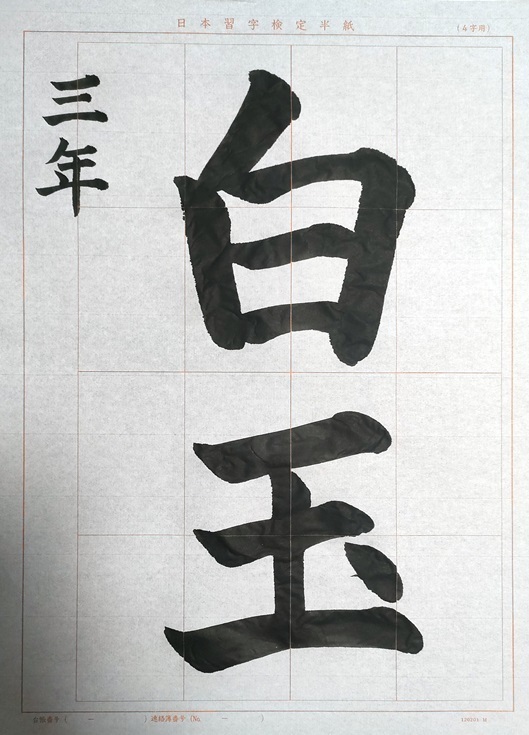 日本習字検定半紙
(4字用)
白玉
三年
会服番号 ( － ) 連絡簿番号 (No. － )